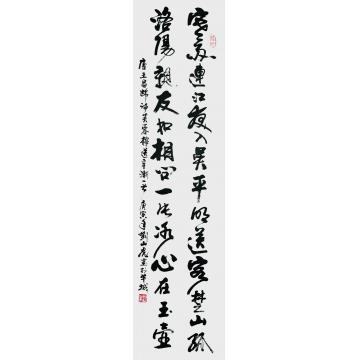 寒雨連江夜入吴平明送客楚山孤
洛陽親友如相問一片冰心在玉壺
唐王昌龄诗芙蓉楼送辛渐一首 庚寅山虎書於羊城